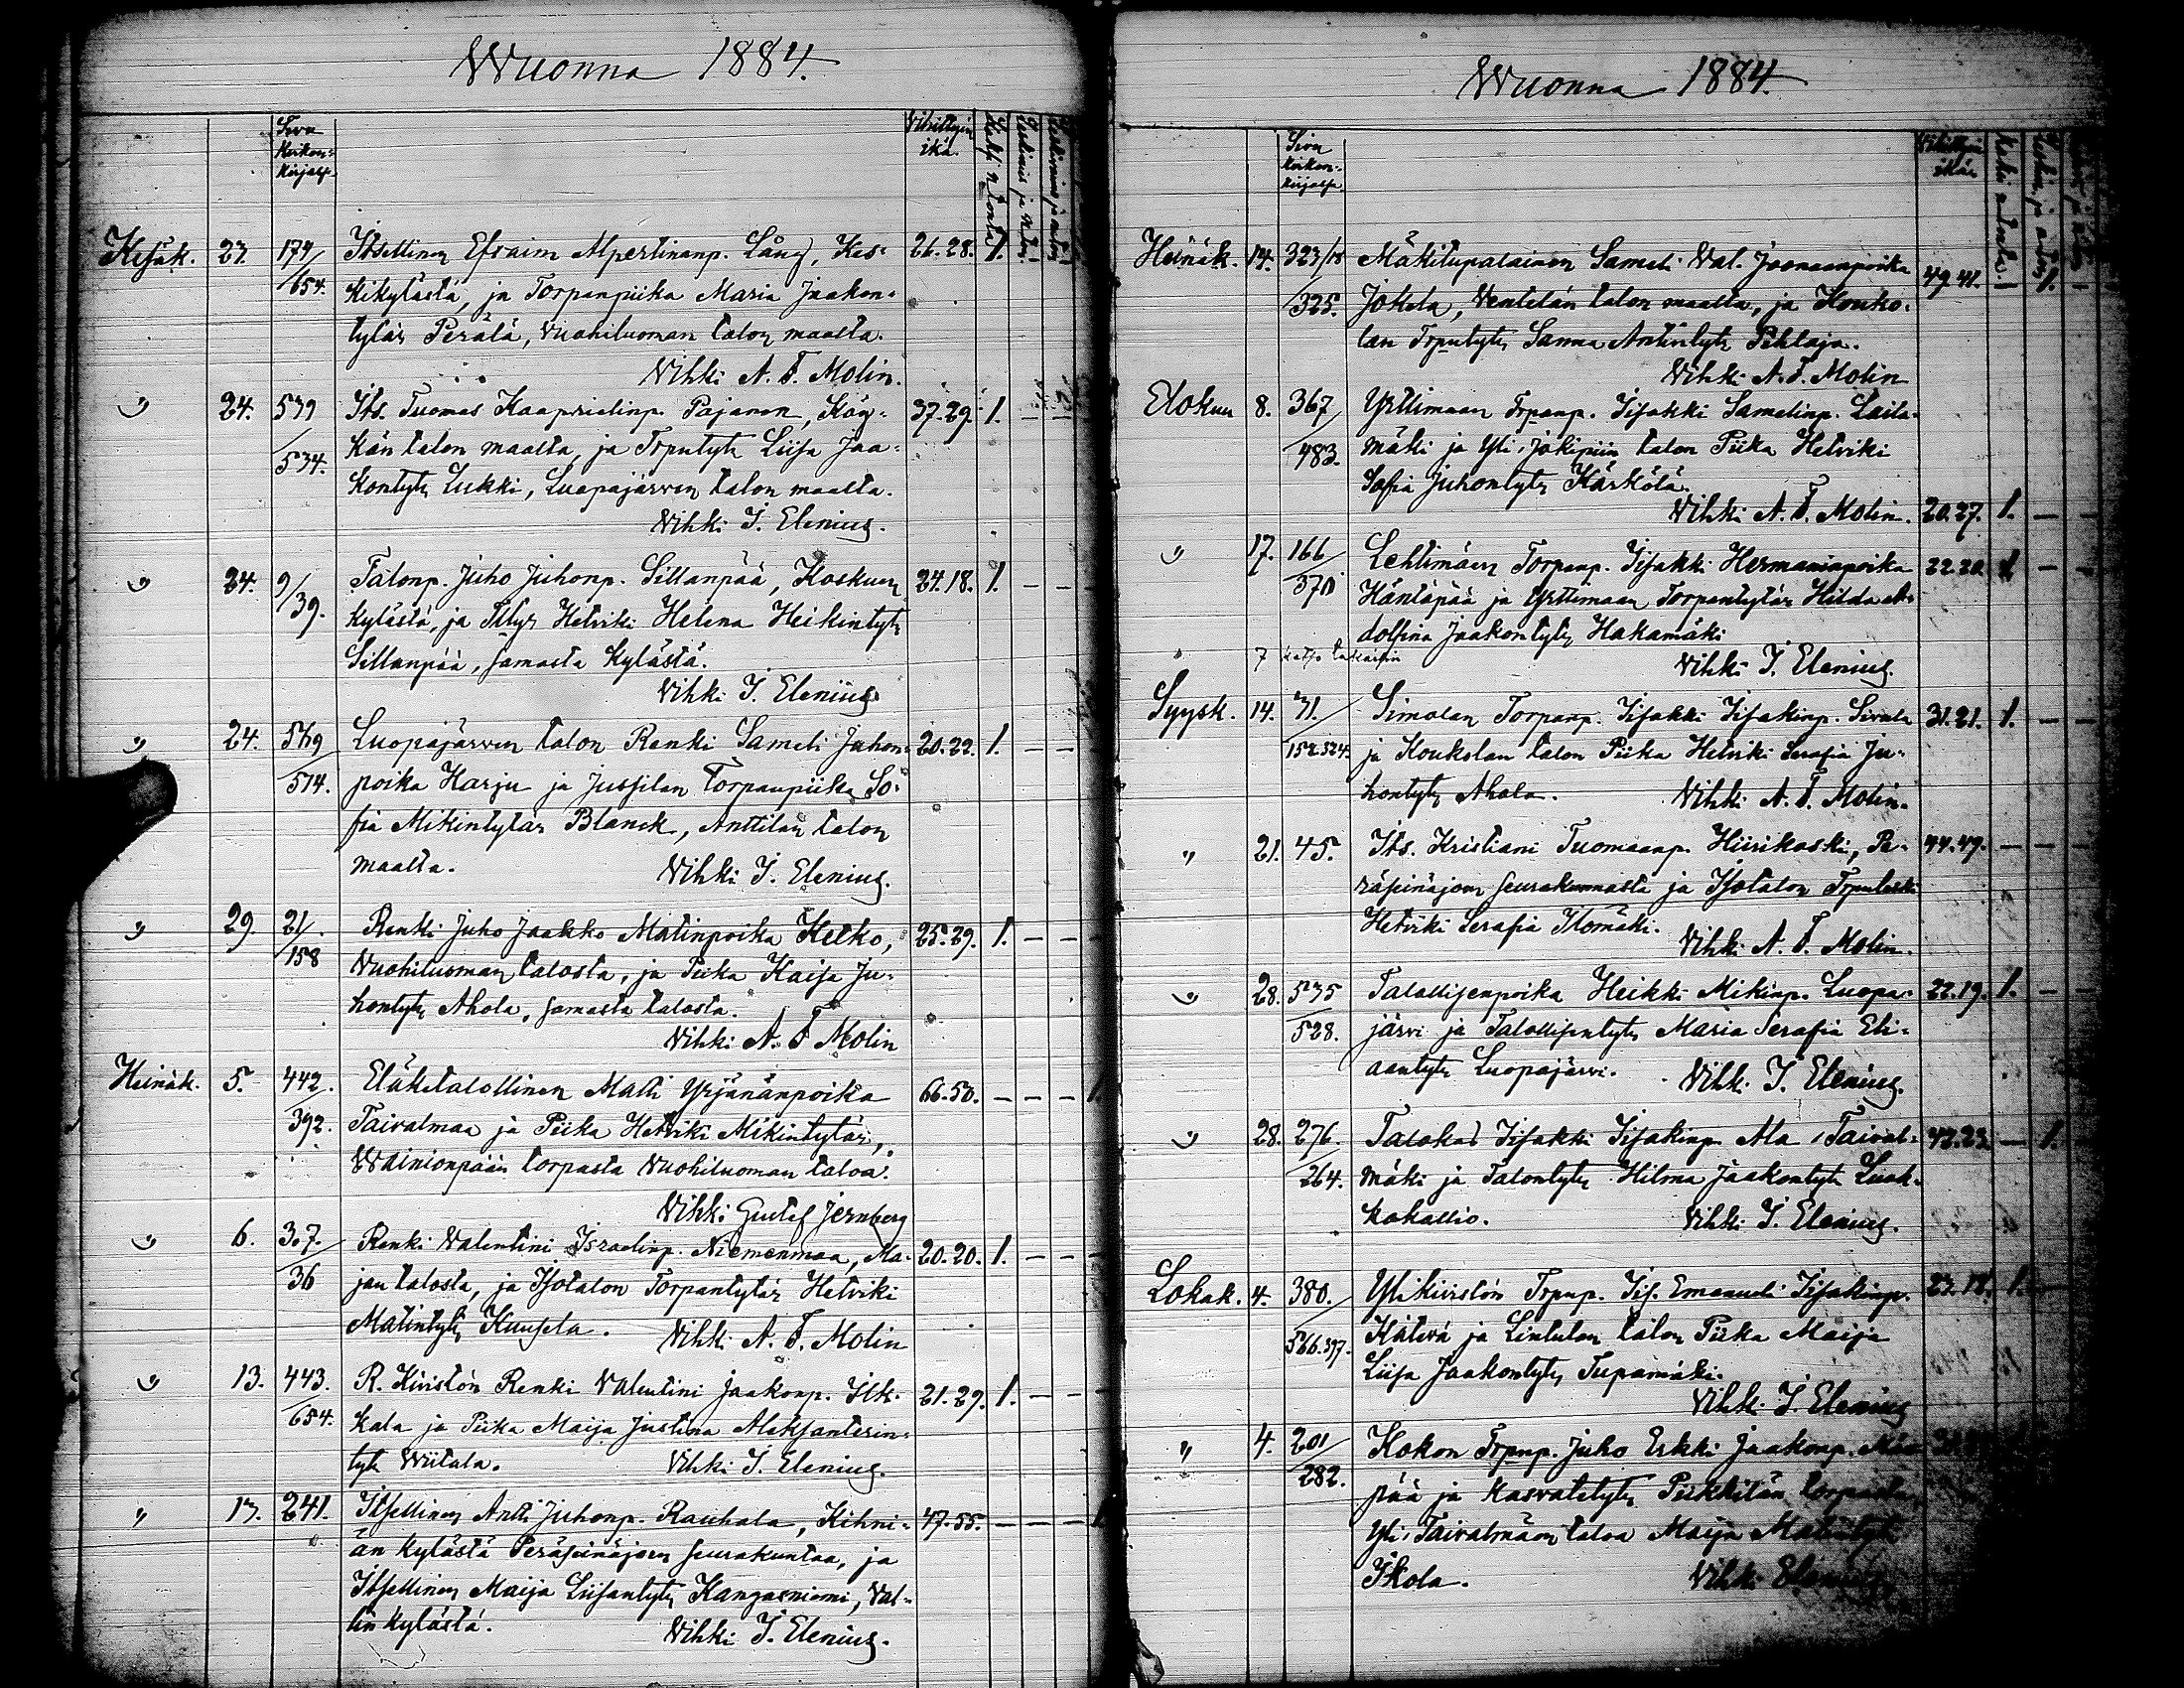 Wuonna 1884.
Sivu Kirkon=kirjassa. Vihittyin ikä.
Kesäk. 23. 174/654. Itsellinen Efraim Alpertinanp. Lång, Kes=
kikylästä, ja Torpanpiika Maria Jaakon=
tytär Perälä, Vuohiluoman talon maalta. 26. 28. 1.
Vihki A. F. Molin.
" 24. 539/534. Its. Tuomas Kaaprielinp. Pajanen, Käy=
kän talon maalta, ja Trputytr Liisa Jaa=
kontytr Lukki, Luopajärven talon maalta. 37. 29. 1. — —
Vihki I. Elenius.
" 24. 9/39. Talonp. Juho Juhonp. Sillanpää, Koskuen
kylästä, ja Tlytr Hetviki Helena Heikintytr
Sillanpää, samasta kylästä. 24. 18. 1. — —
Vihki I. Elenius
" 24. 569/514. Luopajärven talon Renki Sameli Juhon=
poika Harju ja Jussilan Torpanpiika So=
fia Mikintytär Blanck, Anttilan talon
maalta. 20. 22. 1. — —
Vihki I. Elenius.
" 29. 21/158 Renki Juho Jaakko Matinpoika Ketko,
Vuohiluoman talosta, ja Piika Kaisa Ju=
hontytr Ahola, samasta talosta. 25. 29. 1. — —
Vihki A. F. Molin
Heinäk. 5. 442./392. Eläketalollinen Matti Yrjänänpoika
Taivalmaa ja Piika Hetviki Mikintytär,
Wainionpään torpasta Vuohiluoman taloa. 66. 50. — — — 1.
Vihki Gustaf Jernberg
" 6. 307./36 Renki Valentini Israelinp. Niemenmaa, Ma=
jan talosta, ja Isotalon Torpantytär Hetviki
Matintytr Kuusela. 20. 20. 1. — —
Vihki A. F. Molin
" 13. 443./654. R. Kiviston Renki Valentini Jaakonp. Ilk=
kala ja Piika Maija Justina Aleksanterin=
tytr Wiitala. 21. 29. 1. — —
Vihki I. Elenius.
" 13. 241. Itsellinen Antti Juhonp. Rauhala, Kihni=
än kylästä Peräseinäjoen seurakuntaa, ja
Itsellinen Maija Liisantytr Kangasniemi, Val=
lin kylästä. 47. 55. — — — 1.
Vihki I. Elenius.
Wuonna 1884.
Sivu Kirkon=kirjassa. Vihittyin ikä.
Heinäk. 14. 323/18/325. Mäkitupalainen Sameli Val. Joonaanpoika
Jokela, Ventelän talon maalta, ja Kouko=
lan Trputytr Sanna Antintytr Pihlaja. 49. 41. — 1. —
Vihki A. F. Molin
Elokuu 8. 367/483. Yrttimaan Trpanp. Iisakki Samelinp. Laila=
mäki ja Yli-Jokipiin talon Piika Hetviki
Sofia Juhontytr Kärkölä.
Vihki A. F. Molin. 20. 27. 1. — —
" 17. 166/370 Lehtimäen Torpanp. Iisakki Hermaninpoika
Häntäpää ja Yrttimaan Torpantytär Hilda A=
dolfina Jaakontytr Hakamäki 22. 20. 1. — —
" 7 katso takaisin
Vihki I. Elenius.
Syysk. 14. 31./152.524. Simolan Torpanp. Iisakki Iisakinp. Sivula
ja Koukolan talon Piika Hetviki Serafia Ju=
hontytr Ahola. 31. 21. 1. — —
Vihki A. F. Molin.
" 21. 45. Its. Kristiani Tuomaanp. Hiirikoski, Pe=
räseinäjoen seurakunnasta ja Isotalon Trpuleski
Hetviki Serafia Ilomäki. 44. 49. — — —
Vihki A. F. Molin.
" 28. 535/528. Talollisenpoika Heikki Mikinp. Luopa=
järvi ja Talollisentytr Maria Serafia Eli=
aantytr Luopajärvi. 22. 19. 1. — —
Vihki I. Elenius.
" 28. 276./264. Talokas Iisakki Iisakinp. Ala-Taival=
mäki ja Talontytr Hilma Jaakontytr Luok=
kakallio. — 1. —
Vihki I. Elenius.
Lokak. 4. 380./566.397. Ylikiviston Trpnp. Iis. Emanueli Iisakinp.
Kätevä ja Lintulan talon Piika Maija
Liisa Jaakontytr Tupamäki. 23. 18. 1.
Vihki I. Elenius
" 4. 201/282. Kokon Trpnp. Juho Erkki Jaakonp.
pää ja kasvatetytr Piikkilän torpasta
Yli-Taivalmäen taloa Maija Matintytr
Ikola. Vihki Elenius